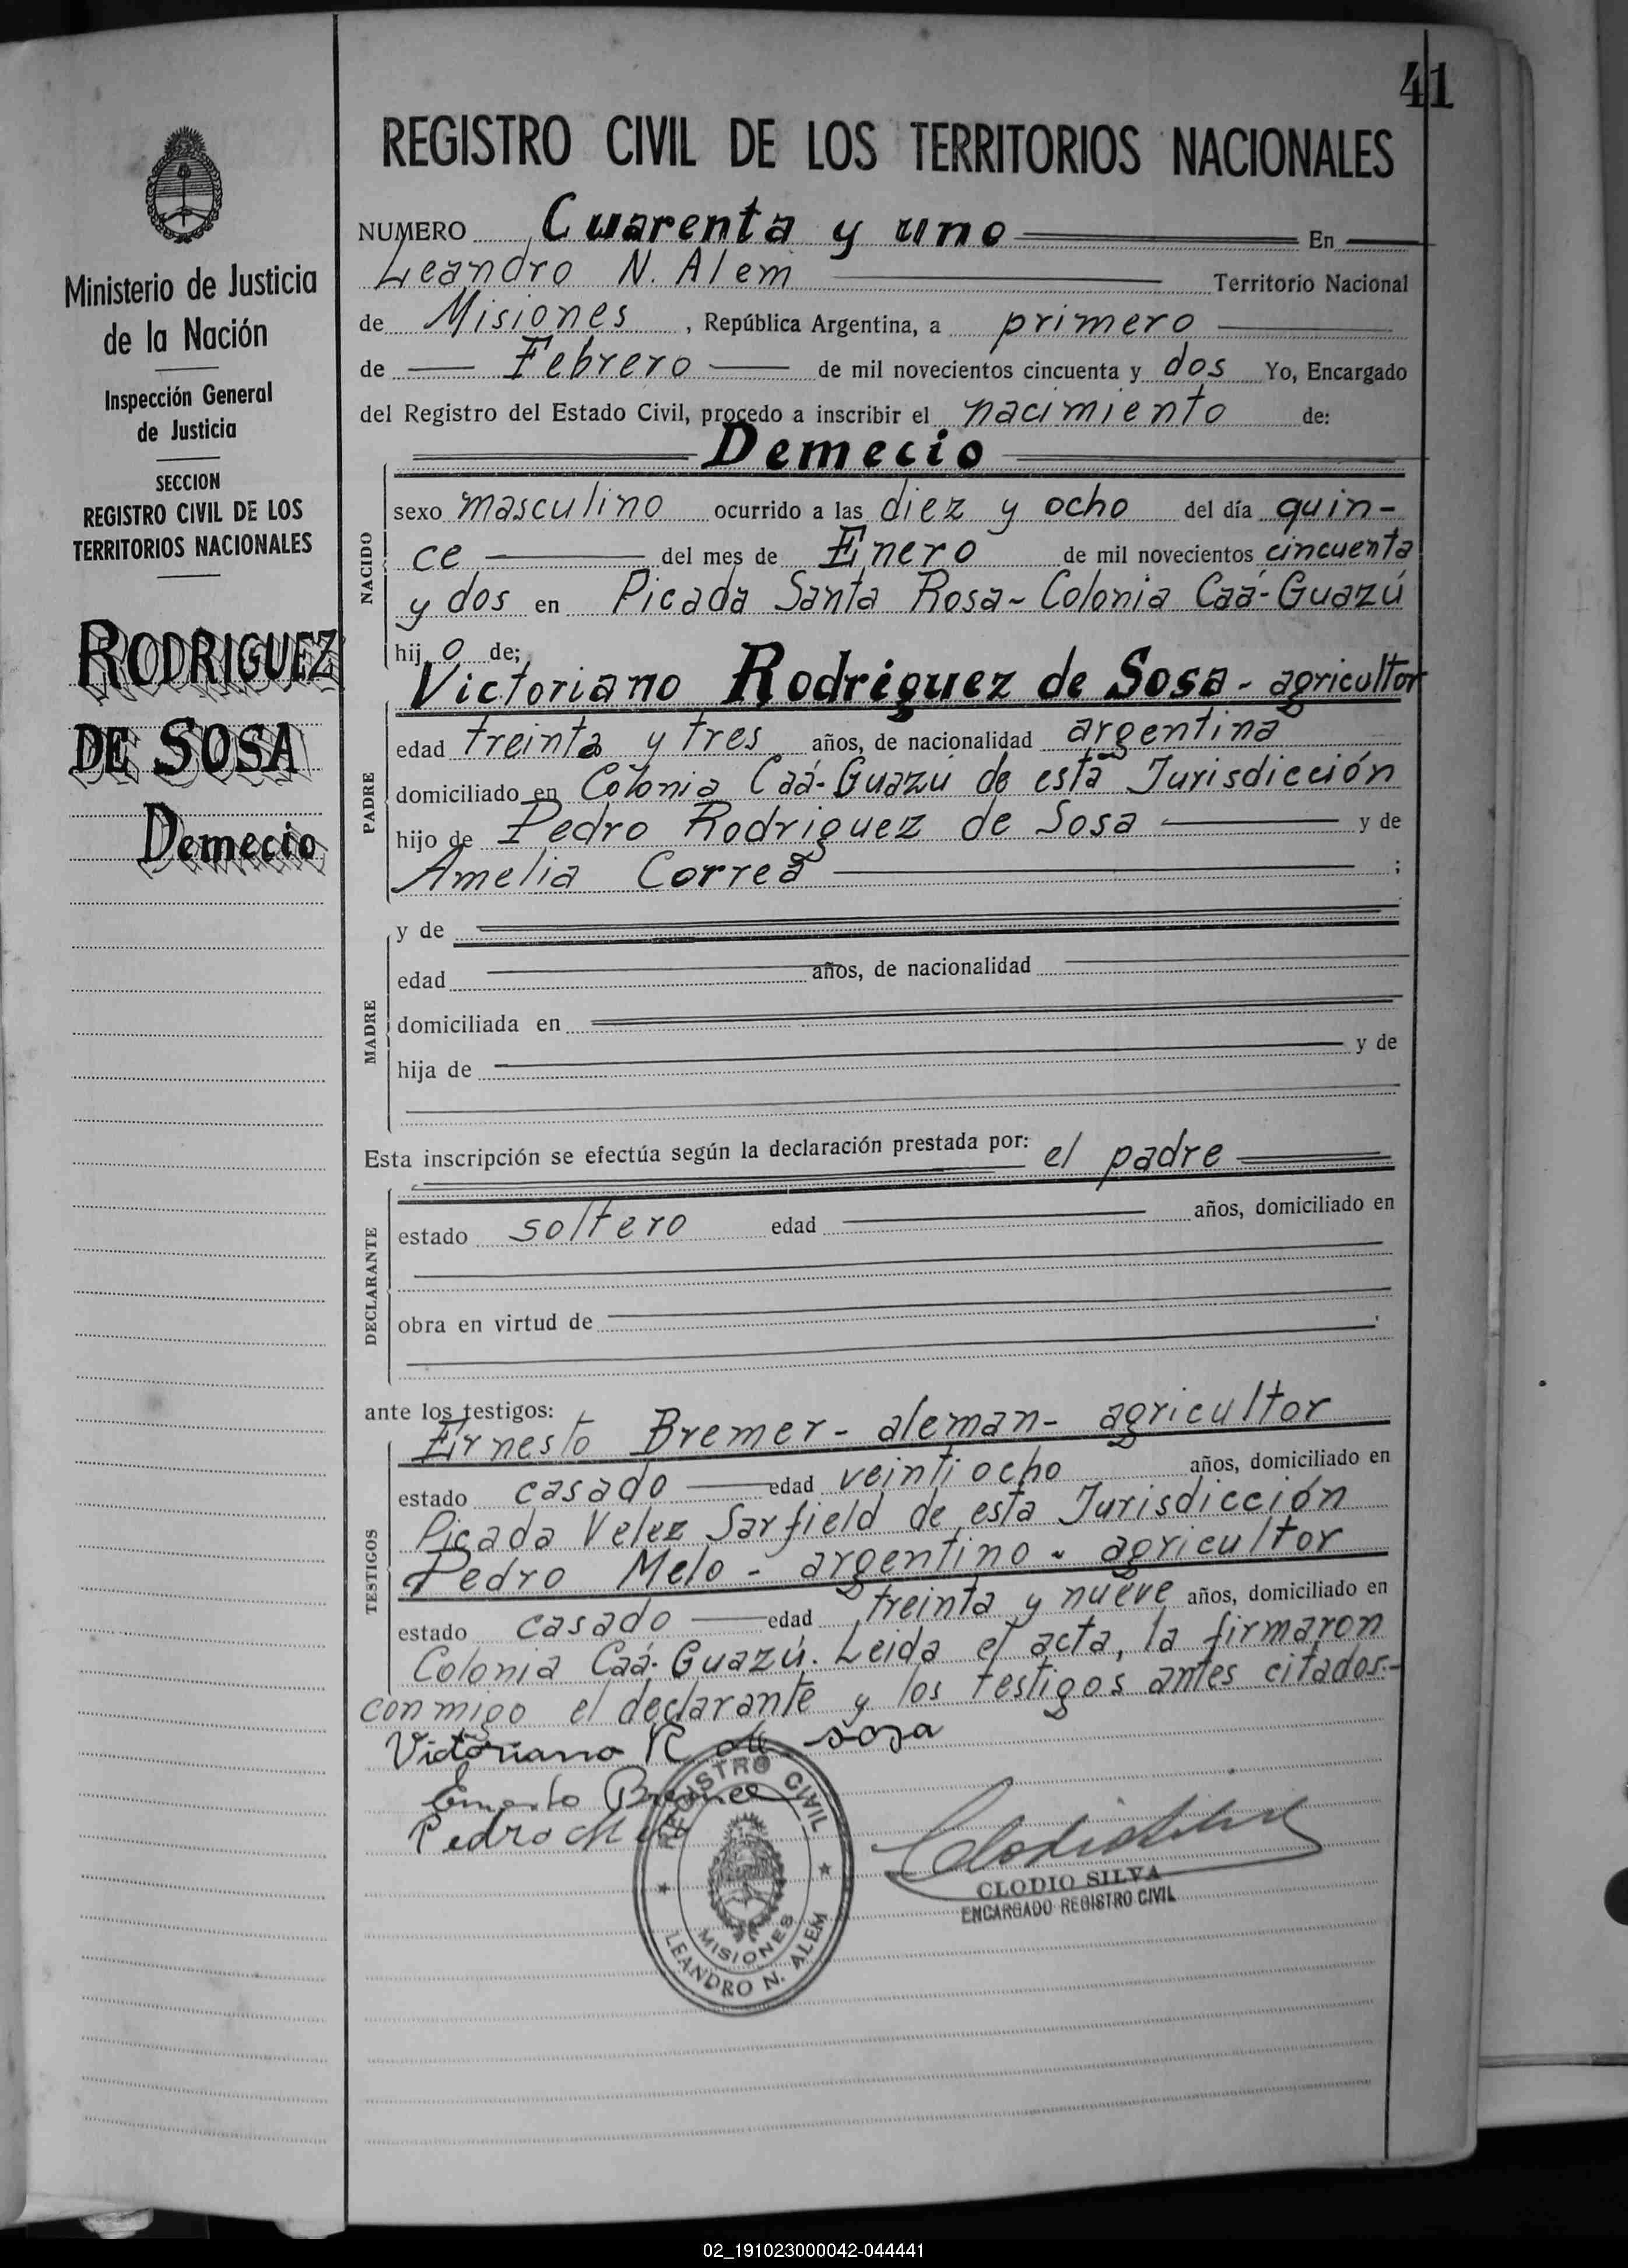 41
Ministerio de Justicia
de la Nación
Inspección General
de Justicia
SECCION
REGISTRO CIVIL DE LOS
TERRITORIOS NACIONALES
RODRIGUEZ
DE SOSA
Demecio
REGISTRO CIVIL DE LOS TERRITORIOS NACIONALES
NUMERO Cuarenta y uno En
Leandro N. Alem Territorio Nacional
de Misiones, República Argentina, a primero
de Febrero de mil novecientos cincuenta y dos Yo, Encargado
del Registro del Estado Civil, procedo a inscribir el nacimiento de:
Demecio
NACIDO
sexo masculino ocurrido a las diez y ocho del día quin-
ce del mes de Enero de mil novecientos cincuenta
y dos en Picada Santa Rosa - Colonia Caá-Guazú
hijo de;
Victoriano Rodriguez de Sosa - agricultor
PADRE
edad treinta y tres años, de nacionalidad argentina
domiciliado en Colonia Caá-Guazú de esta Jurisdicción
hijo de Pedro Rodriguez de Sosa y de
Amelia Correa ;
MADRE
y de
edad años, de nacionalidad
domiciliada en
hija de y de
Esta inscripción se efectúa según la declaración prestada por: el padre
DECLARANTE
estado soltero edad años, domiciliado en
obra en virtud de ;
ante los testigos:
Ernesto Bremer - aleman - agricultor
TESTIGOS
estado casado edad veintiocho años, domiciliado en
Picada Velez Sarfield de esta Jurisdicción
Pedro Melo - argentino - agricultor
estado casado edad treinta y nueve años, domiciliado en
Colonia Caá-Guazú. Leida el acta, la firmaron
conmigo el declarante y los testigos antes citados.-
Victoriano R de Sosa
Ernesto Bremer
Pedro Melo
REGISTRO CIVIL
MISIONES
LEANDRO N. ALEM
Clodio Silva
CLODIO SILVA
ENCARGADO REGISTRO CIVIL
02_191023000042-044441